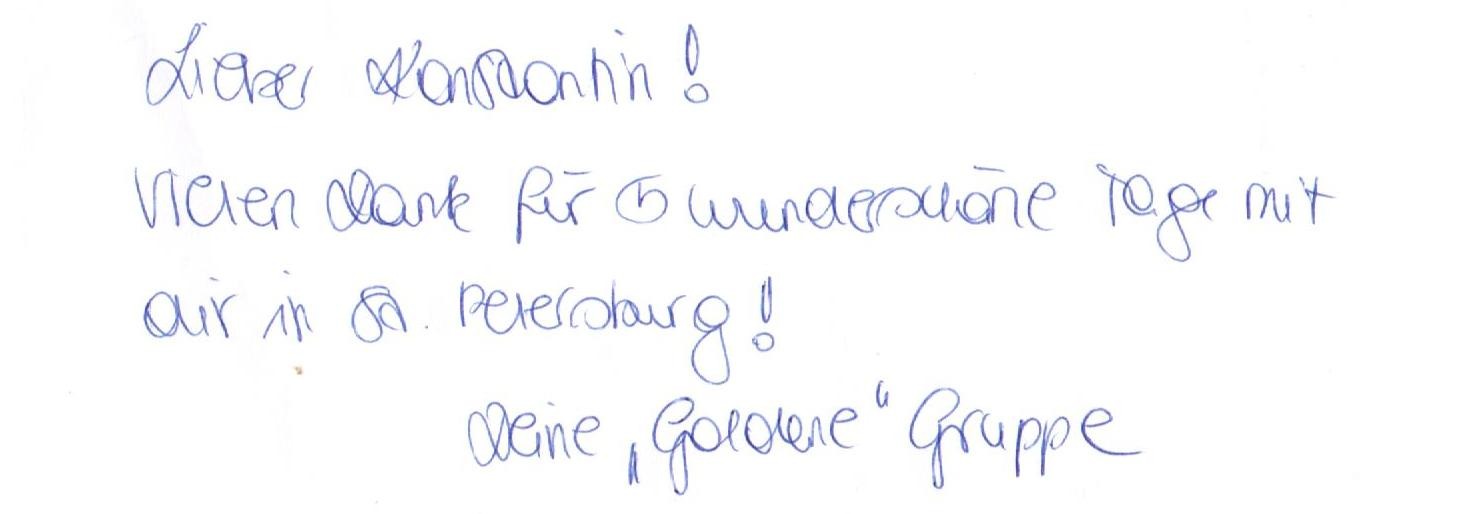 Lieber Konstantin!
Vielen Dank für 5 wunderschöne Tage mit
dir in St. Petersburg!
Deine „Goldene“ Gruppe